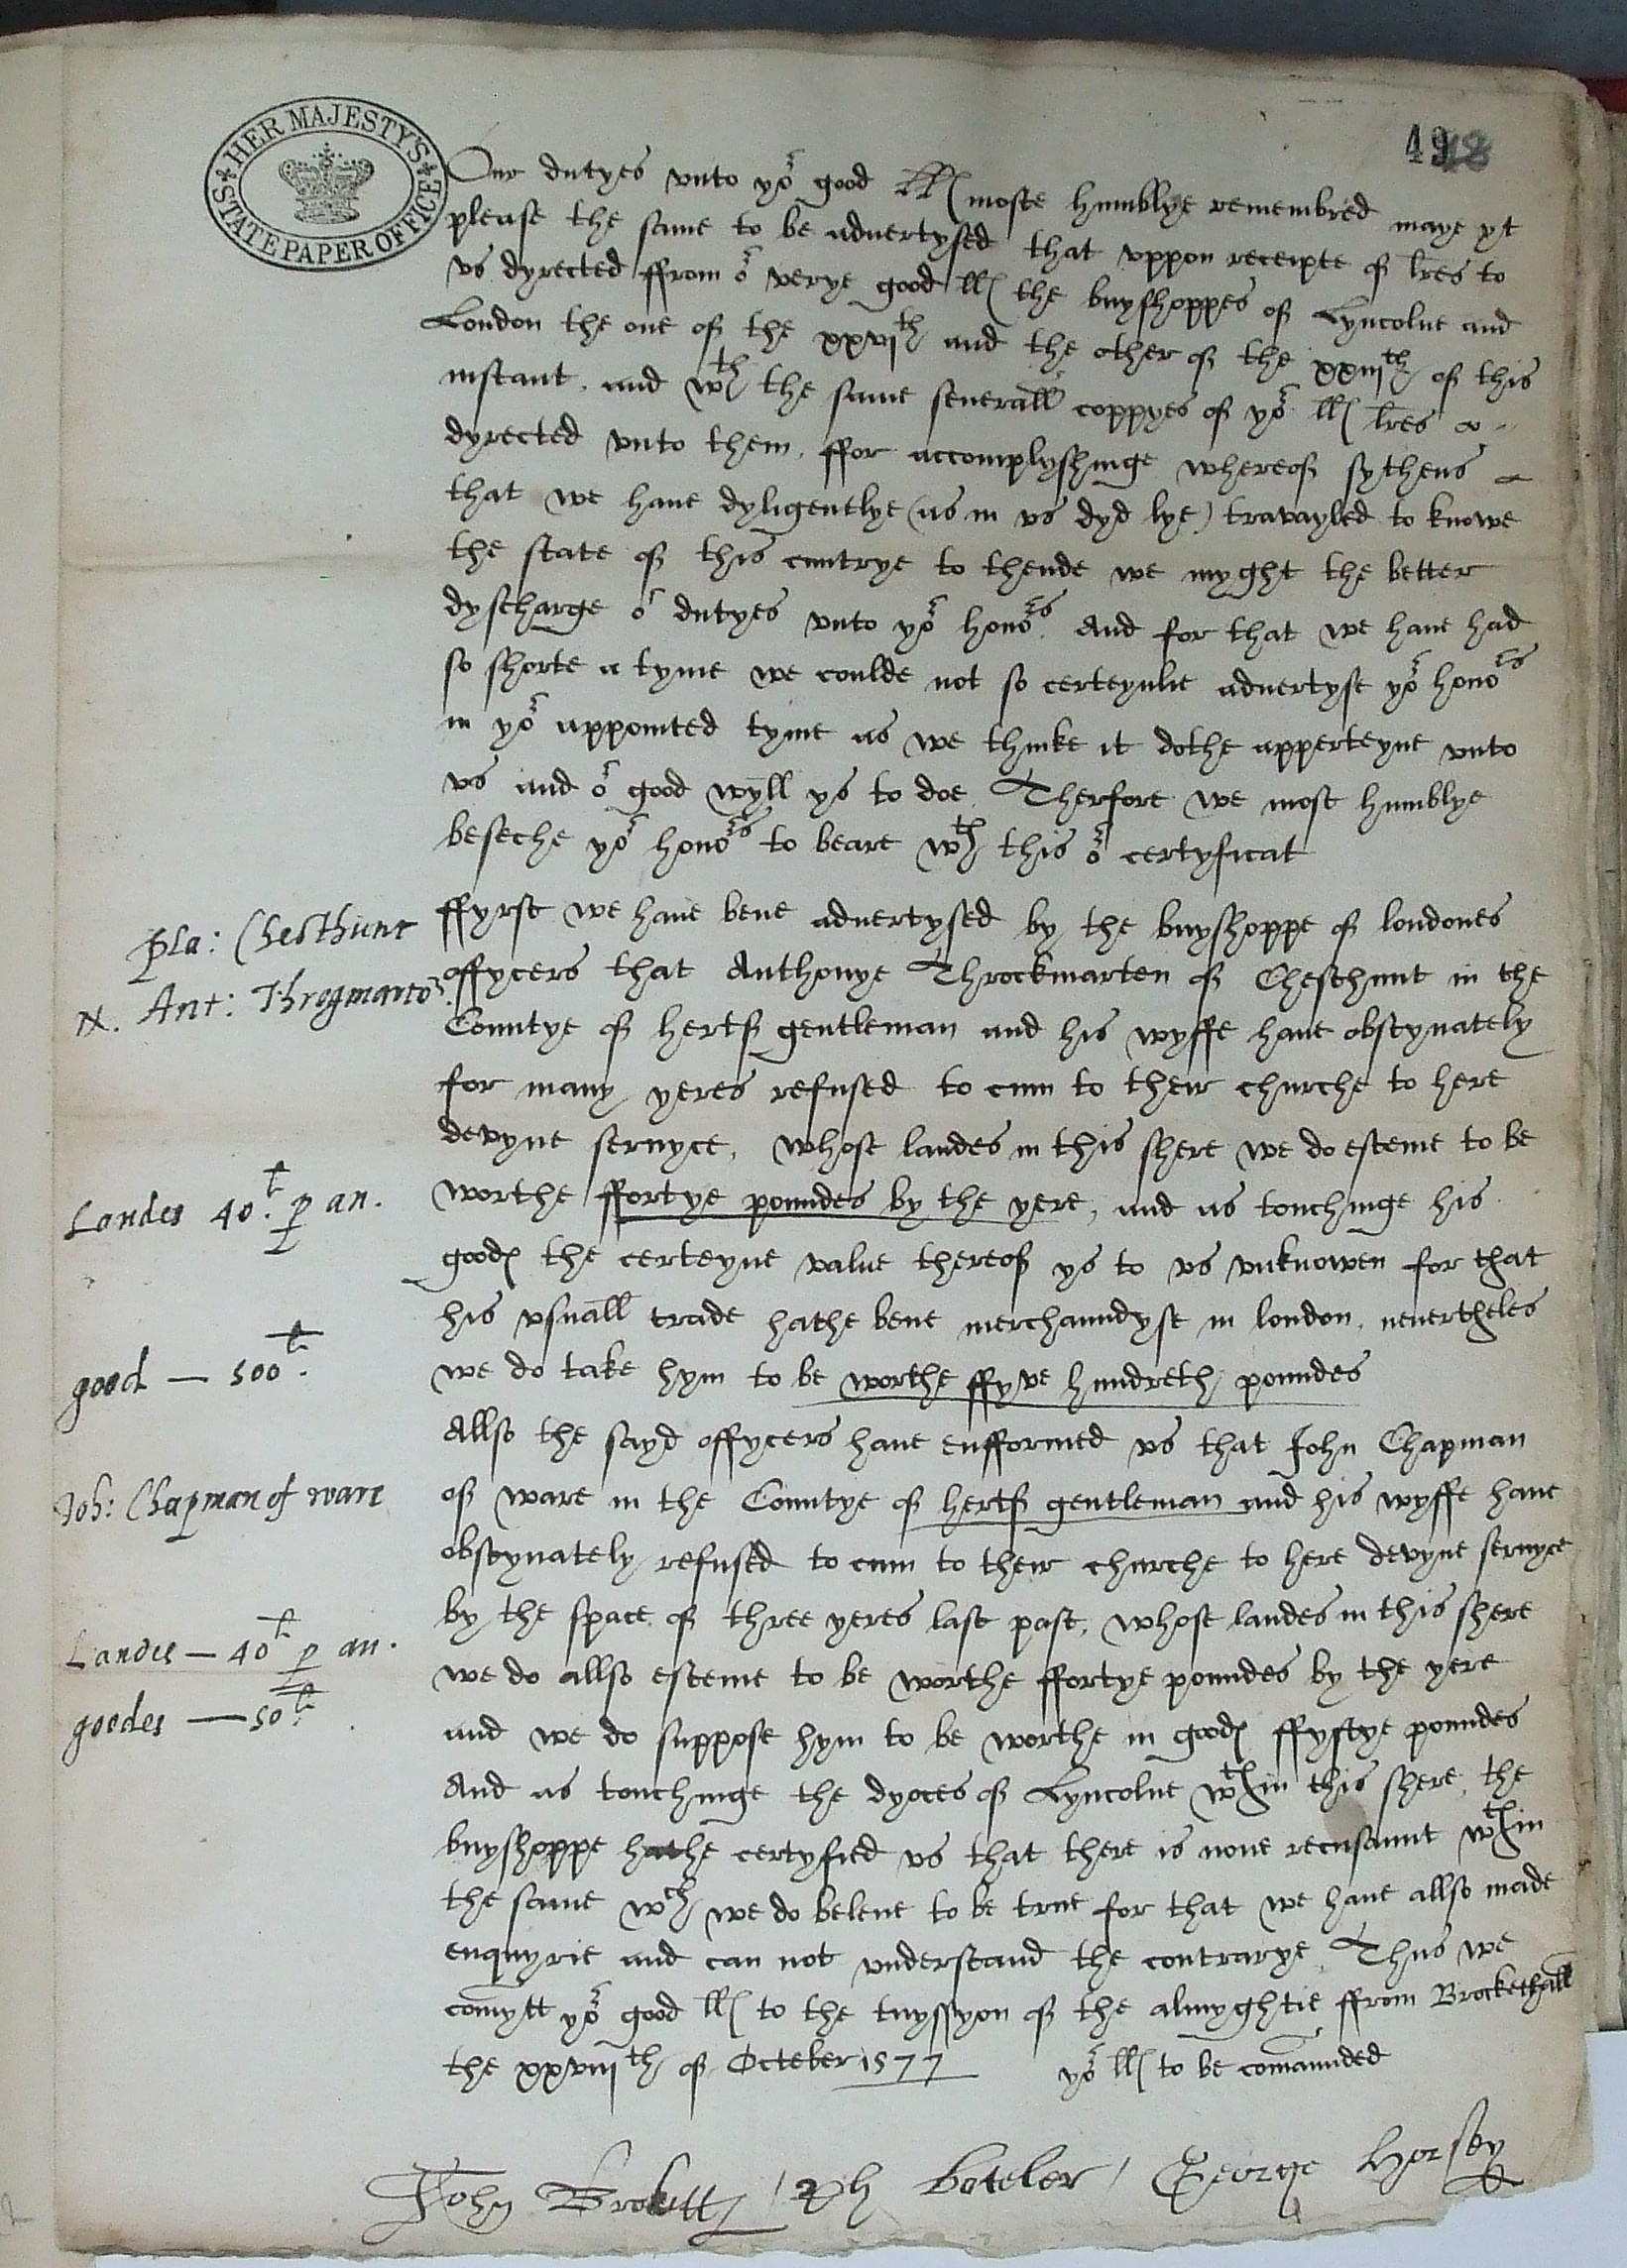 HER MAJESTY'S
STATE PAPER OFFICE
49
Our dutyes vnto yor good LL moste humblye remembred maye yt
please the same to be aduertysed that vppon receipte of lres to
vs dyrected ffrom or verye good ll the buyshoppes of Lyncolne and
London the one of the xxvjth and the other of the xxiijth of this
instant. and wth the same seuerall coppyes of yor ll lres
dyrected vnto them, ffor accomplyshinge whereof sythens
that we haue dyligentlye (as in vs dyd lye) travayled to knowe
the state of this cuntrye to thende we myght the better
dyscharge or dutyes vnto yor honors. And for that we haue had
so shorte a tyme we coulde not so certeynlie aduertyse yor honors
in yor appointed tyme as we thinke it dothe apperteyne vnto
vs and or good wyll ys to doe. Therfore we most humblye
beseche yor honors to beare wth this or certyficat
pla: Chesthunt
ffyrst we haue bene aduertysed by the buyshoppe of londones
Ant: Throgmarto
offycers that Anthonye Throckmarten of Chesthunt in the
Countye of hertf gentleman and his wyffe haue obstynately
for many yeres refused to cum to their churche to here
devyne seruyce, whose landes in this shere we do esteme to be
Landes 40l. p an.
worthe ffortye poundes by the yere, and as touchinge his
good the certeyne value thereof ys to vs vnknowen for that
his vsuall trade hathe bene merchaundyse in london, neuertheles
good — 500l.
we do take hym to be worthe ffyve hundreth poundes
Allso the sayd offycers haue enfformed vs that John Chapman
Joh: Chapman of ware
of ware in the Countye of hertf gentleman and his wyffe haue
obstynately refused to cum to their churche to here devyne seruyce
by the space of three yeres last past, whose landes in this shere
Landes — 40l p an.
we do allso esteme to be worthe ffortye poundes by the yere
goodes — 50l.
and we do suppose hym to be worthe in good ffyftye poundes
And as touchinge the dyoces of Lyncolne wthin this shere, the
buyshoppe hathe certyfied vs that there is none recusaunt wthin
the same wch we do beleue to be true for that we haue allso made
enquyrie and can not vnderstand the contrarye. Thus we
comytt yor good ll to the tuyssyon of the almyghtie ffrom Brockethall
the xxviijth of October 1577 yor ll to be comaunded
John Brokett Ph boteler George Horsey